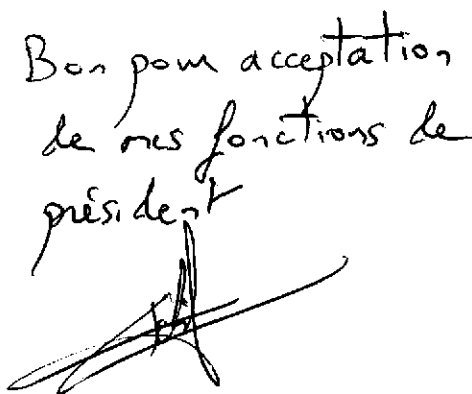 Bon pour acceptation
de mes fonctions de
président